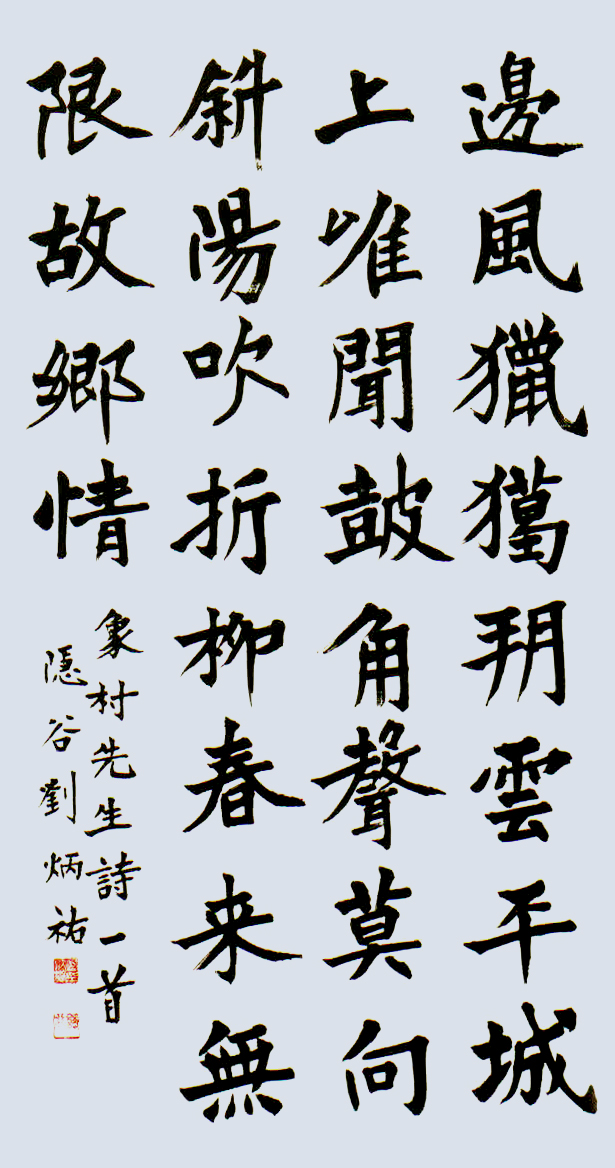 邊風獵獦朔雲平城
上唯聞皷角聲莫向
斜陽吹折柳春来無
限故鄉情
象村先生詩一首
隱谷劉炳祐